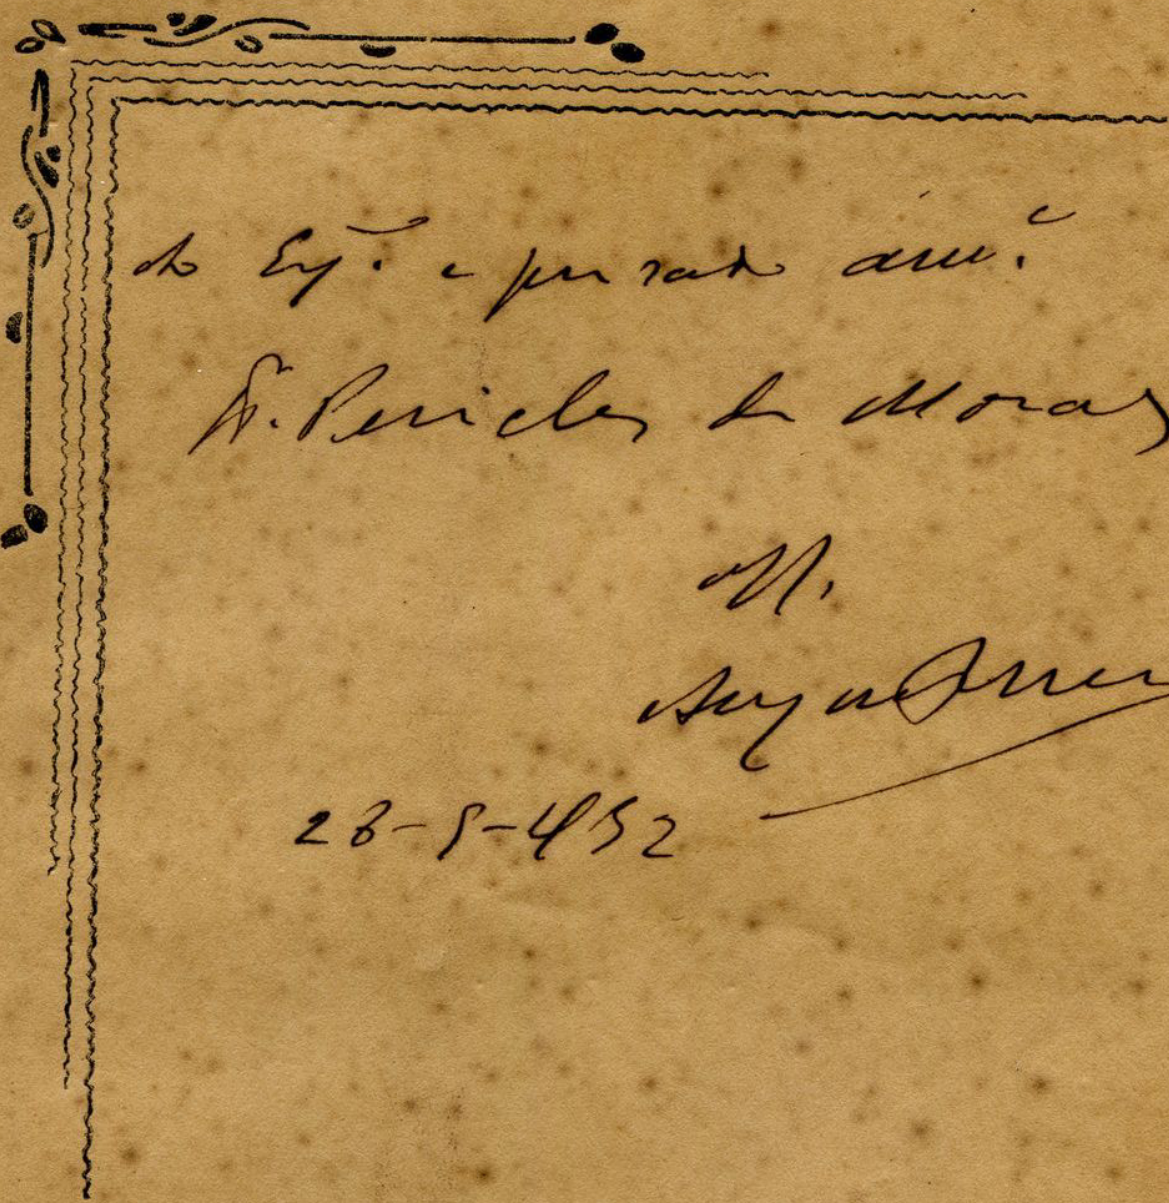 ao Exº. e prezado amº.
Dr. Pericles de Moraes
Off.
28-5-952